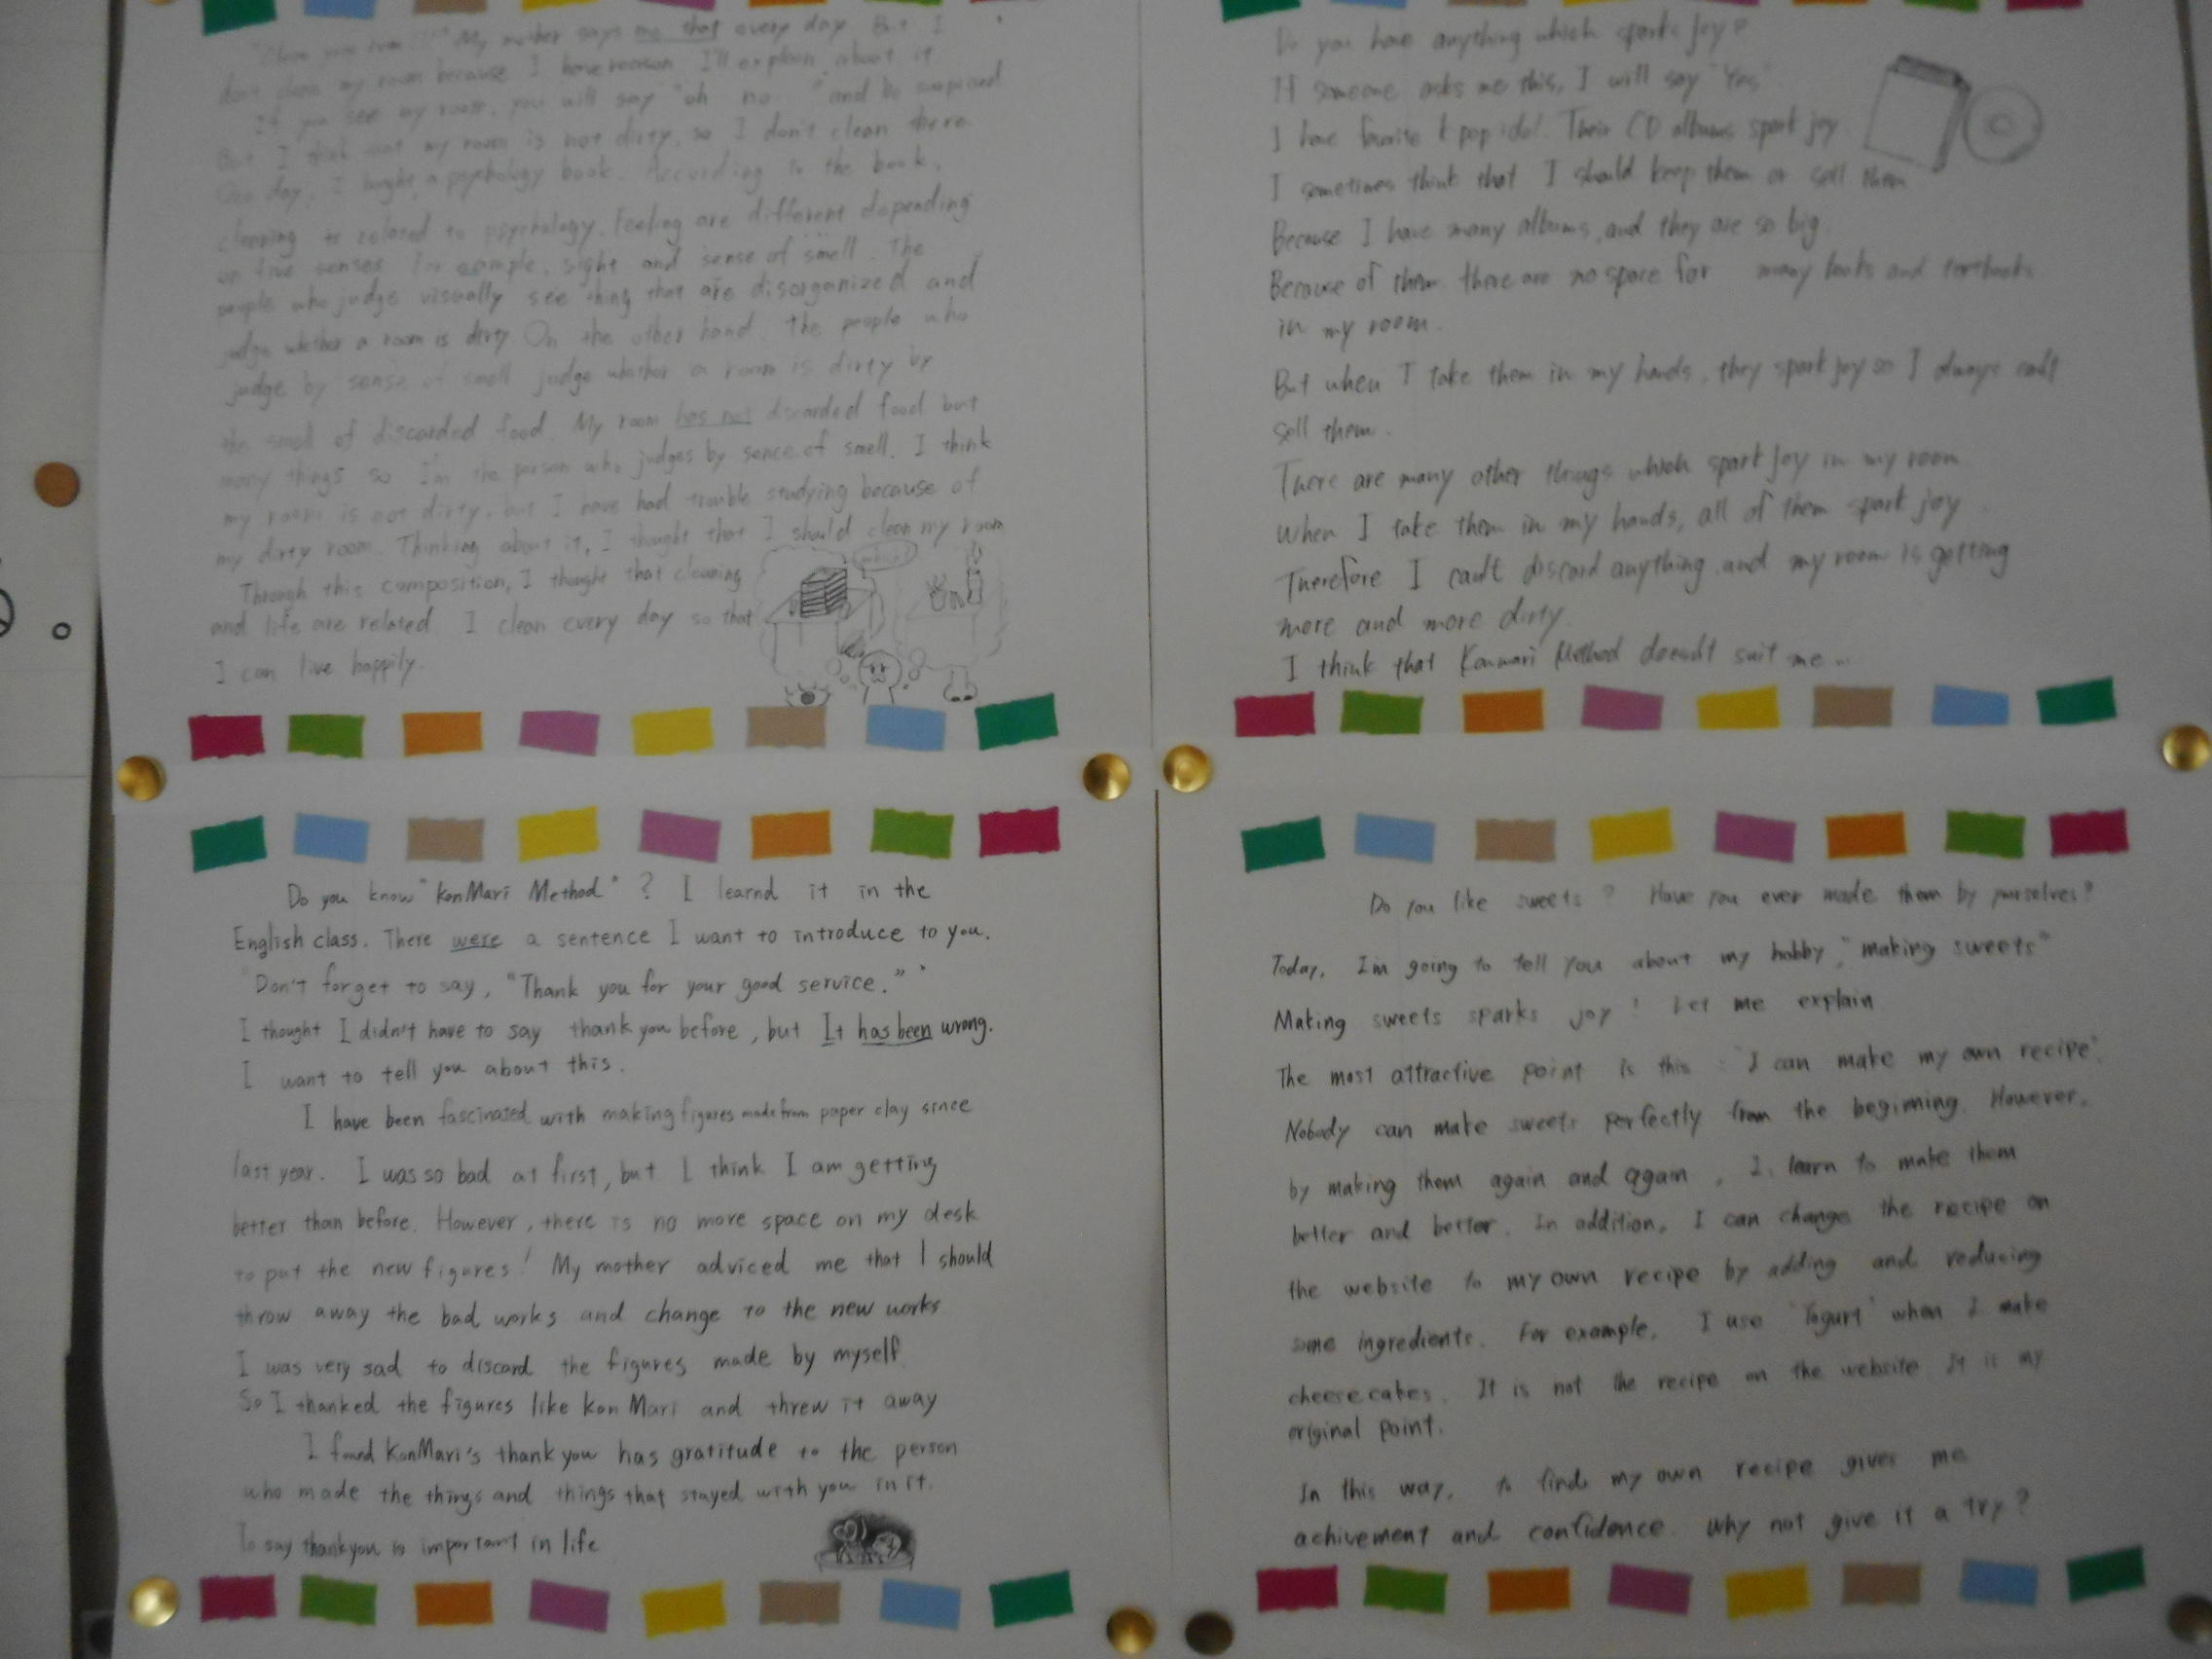 "Clean your room!!!" My mother says me that every day. But I
don't clean my room because I have reason. I'll explain about it
If you see my room, you will say "oh no " and be surprised
But I think that my room is not dirty, so I don't clean there
One day, I bought a psychology book. According to the book,
cleaning is related to psychology. Feeling are different depending
on five senses. For example, sight and sense of smell. The
people who judge visually see thing that are disorganized and
judge whether a room is dirty. On the other hand, the people who
judge by sense of smell judge whether a room is dirty by
the smell of discarded food. My room has not discarded food but
many things so I'm the person who judges by sence of smell. I think
my room is not dirty, but I have had trouble studying because of
my dirty room. Thinking about it, I thought that I should clean my room
Through this composition, I thought that cleaning
and life are related. I clean every day so that
I can live happily.
which?
Do you have anything which sparks joy?
If someone asks me this, I will say "Yes"
I have favorite k pop idol. Their CD albums spark joy
I sometimes think that I should keep them or sell them
Because I have many albums, and they are so big.
Because of them there are no space for many books and textbooks
in my room.
But when I take them in my hands, they spark joy so I always can't
sell them.
There are many other things which spark joy in my room
When I take them in my hands, all of them spark joy
Therefore I can't discard anything and my room is getting
more and more dirty.
I think that Konmari Method doesn't suit me...
Do you know "KonMari Method" ? I learnd it in the
English class. There were a sentence I want to introduce to you.
"Don't forget to say, "Thank you for your good service." "
I thought I didn't have to say thank you before, but It has been wrong.
I want to tell you about this.
I have been fascinated with making figures made from paper clay since
last year. I was so bad at first, but I think I am getting
better than before. However, there is no more space on my desk
to put the new figures! My mother adviced me that I should
throw away the bad works and change to the new works
I was very sad to discard the figures made by myself.
So I thanked the figures like Kon Mari and threw it away
I found KonMari's thank you has gratitude to the person
who made the things and things that stayed with you in it.
To say thankyou is important in life
Do you like sweets ? Have you ever made them by yourselves?
Today, I'm going to tell you about my hobby, "making sweets"
Making sweets sparks joy! Let me explain
The most attractive point is this : "I can make my own recipe".
Nobody can make sweets perfectly from the beginning. However,
by making them again and again , I learn to make them
better and better. In addition, I can change the recipe on
the website to my own recipe by adding and reducing
some ingredients. For example, I use "Yogurt" when I make
cheese cakes. It is not the recipe on the website It is my
original point.
In this way, to find my own recipe gives me
achivement and confidence. Why not give it a try?